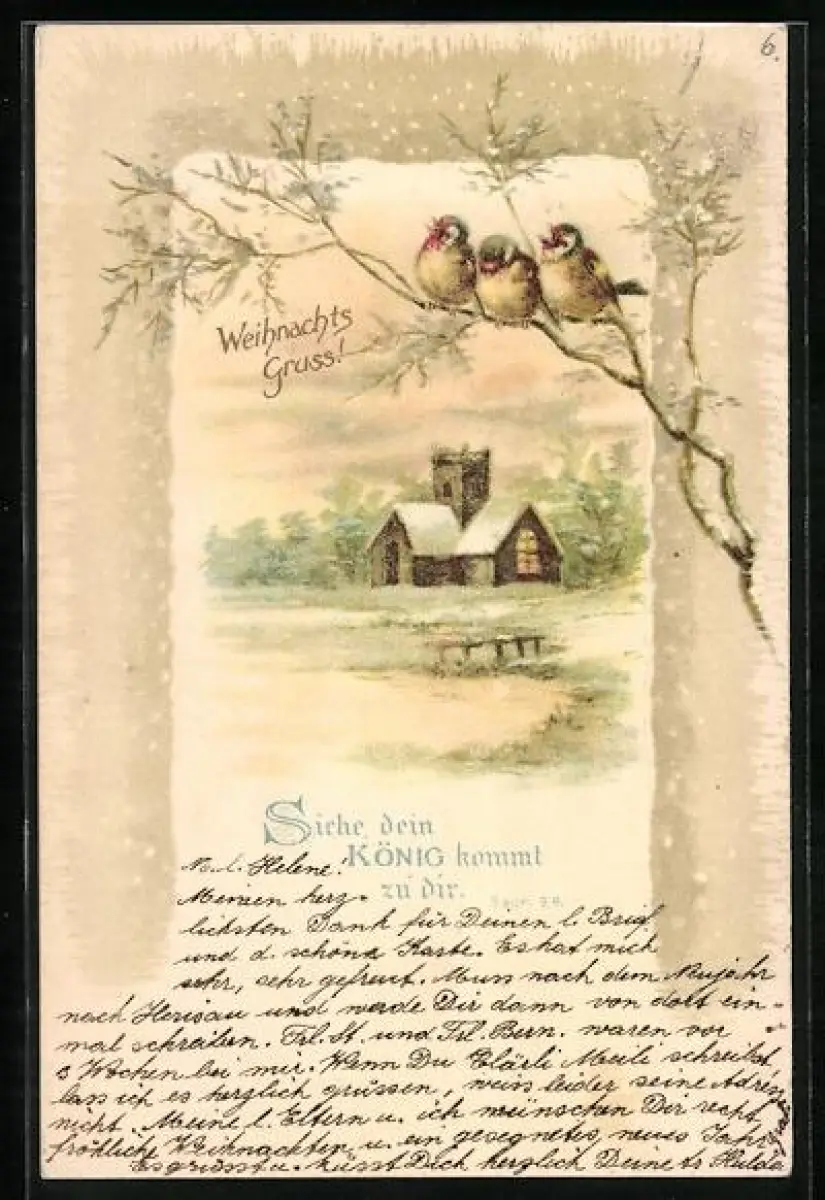 6.
Weihnachts
Gruss!
Siehe, dein
KÖNIG kommt
zu dir.
M. l. Helene!
Meinen herz-
lichsten Dank für Deinen l. Brief
und d. schöne Karte. Es hat mich
sehr, sehr gefreut. Muss nach dem Neujahr
nach Herisau und werde Dir dann von dort ein-
mal schreiben. Frl. St. und Frl. Bern. waren vor
3 Wochen bei mir. Wenn Du Clärli Meili schreibst,
lass ich es herzlich grüssen, weiss leider seine Adresse
nicht. Meine l. Eltern u. ich wünschen Dir recht
fröhliche Weihnachten u. ein gesegnetes, neues Jahr.
Es grüsst u. küsst Dich herzlich Deine tr. Hulda